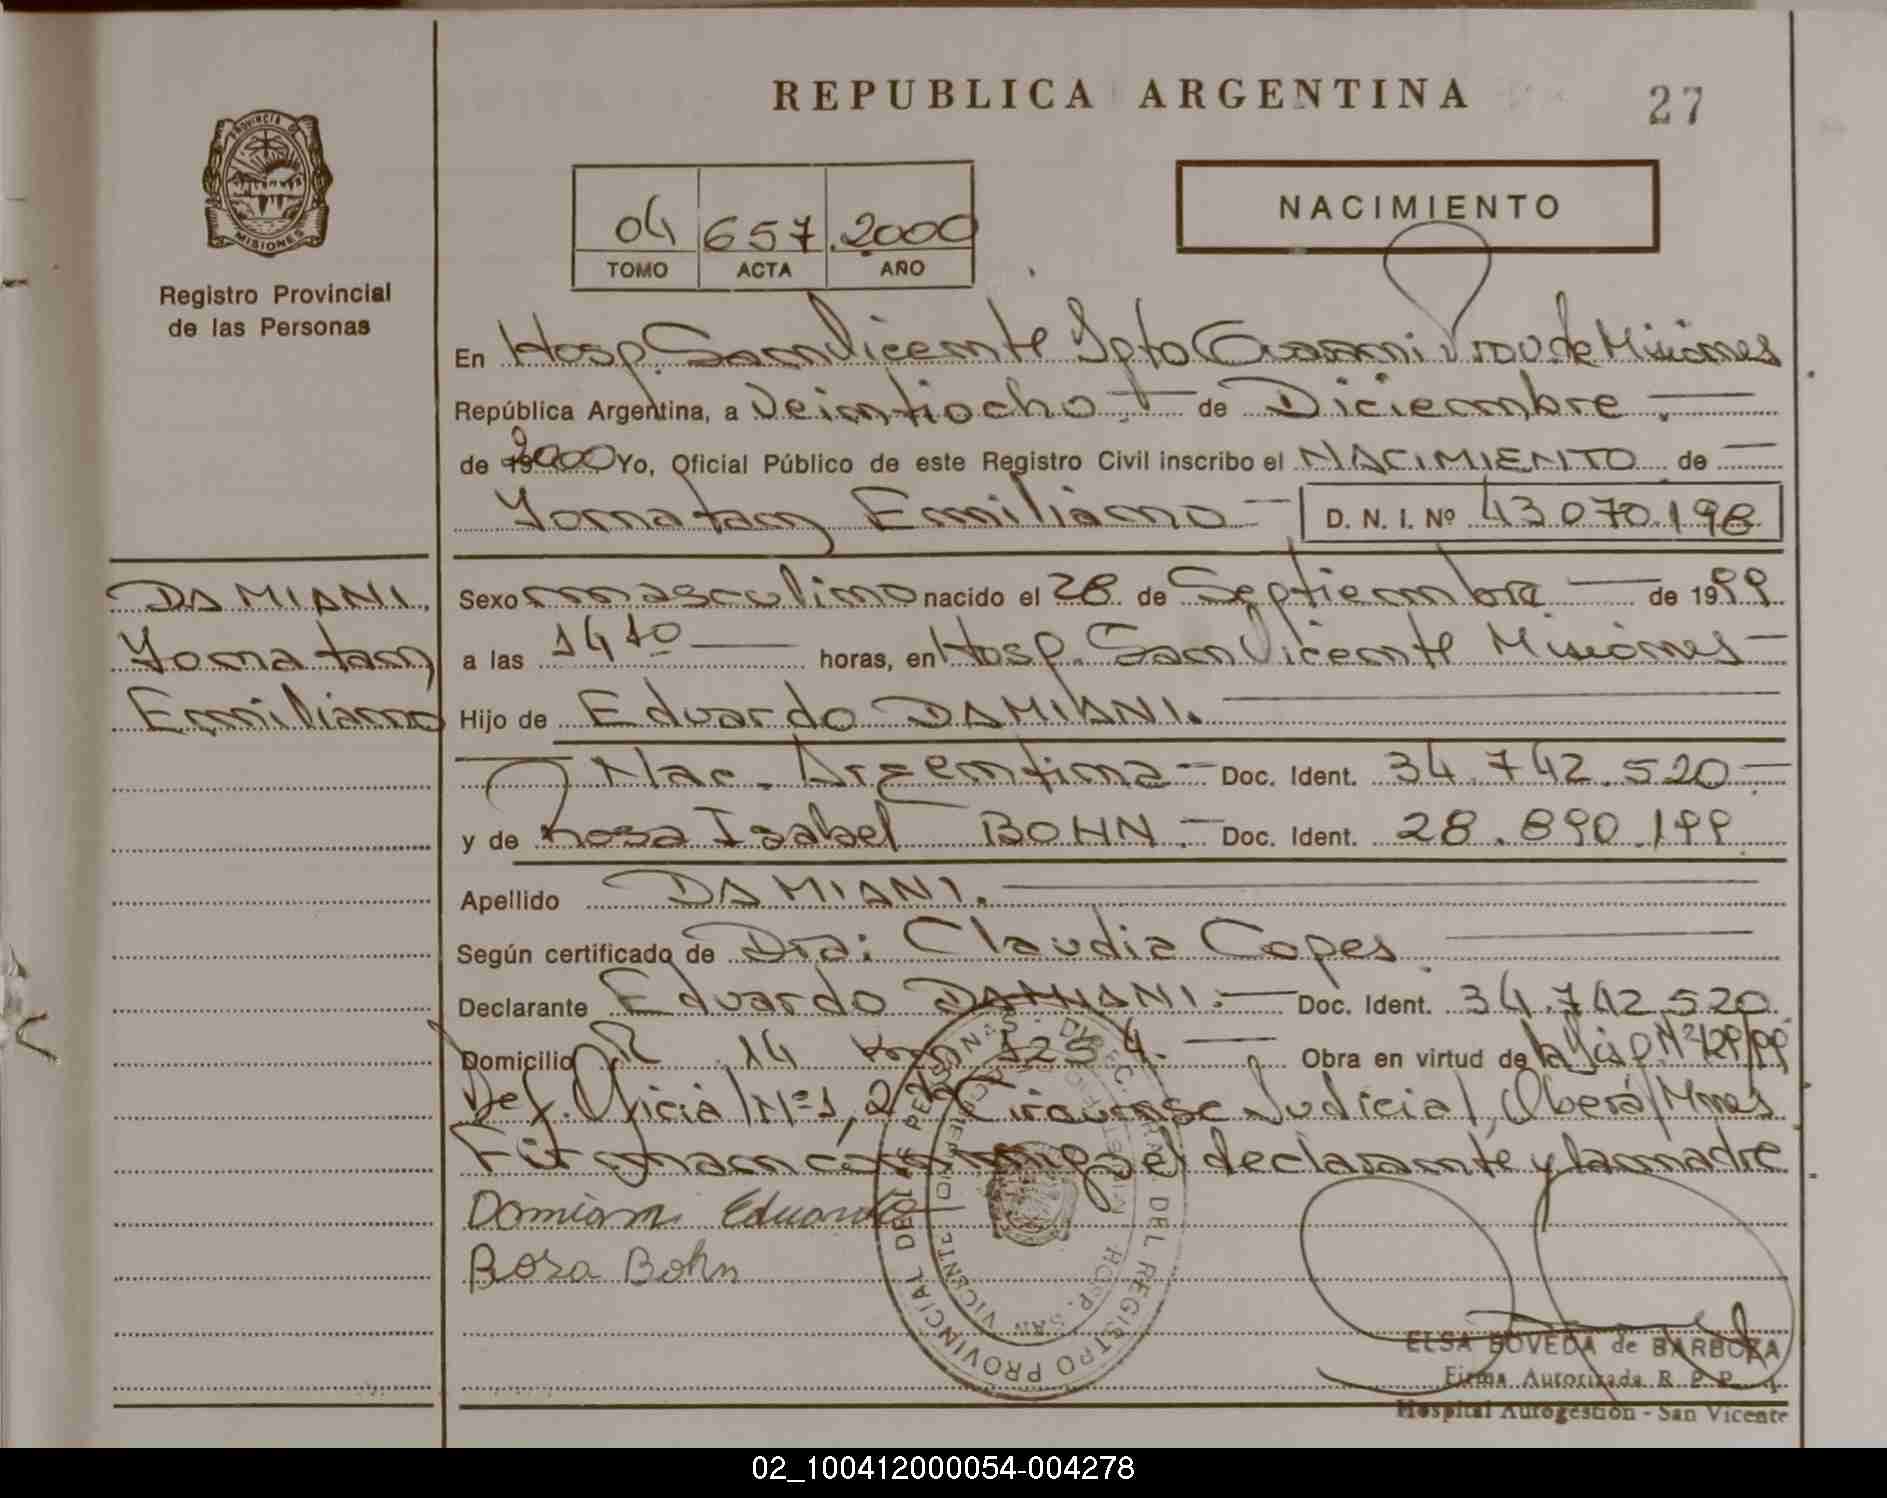 REPUBLICA ARGENTINA
27
PROVINCIA DE
MISIONES
Registro Provincial
de las Personas
04 657 2000
TOMO ACTA AÑO
NACIMIENTO
En Hosp. San Vicente Dpto Guarani Prov. de Misiones
República Argentina, a Veintiocho de Diciembre
de 2000 Yo, Oficial Público de este Registro Civil inscribo el NACIMIENTO de
Yonatan Emiliano D. N. I. Nº 43.070.198
DAMIANI.
Yonatan
Emiliano
Sexo masculino nacido el 28 de Septiembre de 1999
a las 14 10 horas, en Hosp. San Vicente Misiones
Hijo de Eduardo DAMIANI.
Nac. Argentina Doc. Ident. 34.742.520
y de Rosa Isabel BOHN. Doc. Ident. 28.890.199
Apellido DAMIANI.
Según certificado de Dra: Claudia Copes
Declarante Eduardo DAMIANI. Doc. Ident. 34.742.520
Domicilio R. 14 Km 1254. Obra en virtud de Nº 129/99
Def. Oficial Nº 1, 2da Circunsc Judicial, Oberá/Mnes
Firman conmigo el declarante y la madre
Damiani Eduardo
Rosa Bohn
DIREC. GRAL. DEL REGISTRO PROVINCIAL DE LAS PERSONAS
HOSP. SAN VICENTE
ELSA BOVEDA de BARBOZA
Firma Autorizada R. P. P.
Hospital Autogestión - San Vicente
02_100412000054-004278